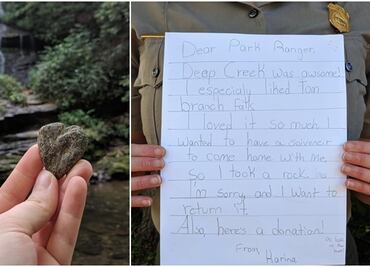 Dear Park Ranger,
Deep Creek was awsome!
I especialy liked Tom
branch falls.
I loved it so much I
wanted to have a sovineir
to come home with me,
so I took a rock.
I'm sorry, and I want to
return it.
Also, here's a donation!
From,
Karina
on back